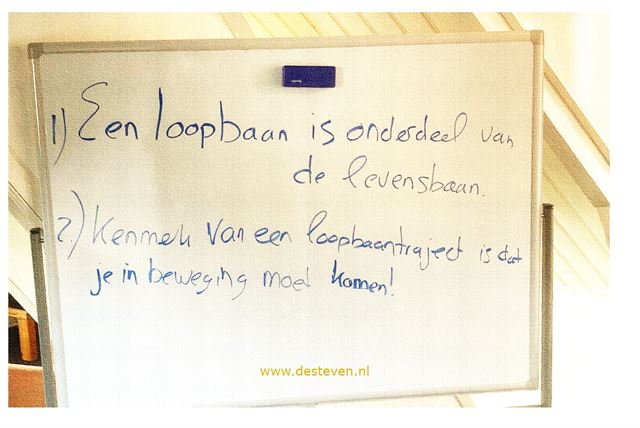 1) Een loopbaan is onderdeel van
de levensbaan.
2.) Kenmerk van een loopbaantraject is dat
je in beweging moet komen!
www.desteven.nl